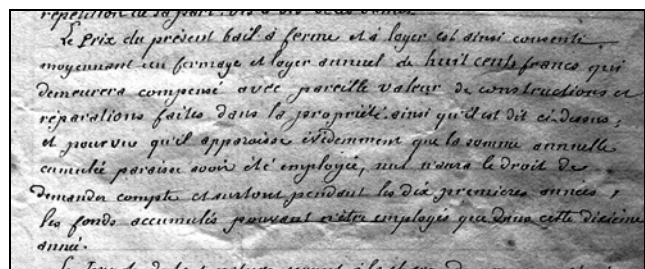 répétition de sa part. vis à vis
Le Prix du présent bail à ferme et à loyer est ainsi consenti
moyennant un fermage et loyer annuel de huit cents francs qui
demeurera compensé avec pareille valeur de constructions et
réparations faites dans la propriété. ainsi qu'il est dit ci-dessus ;
et pourvu qu'il apparaisse évidemment que la somme annuelle
cumulée paraisse avoir été employée, nul n'aura le droit de
demander compte et surtout pendant les dix premières années ,
les fonds accumulés pouvant n'être employés que dans cette dixième
année.